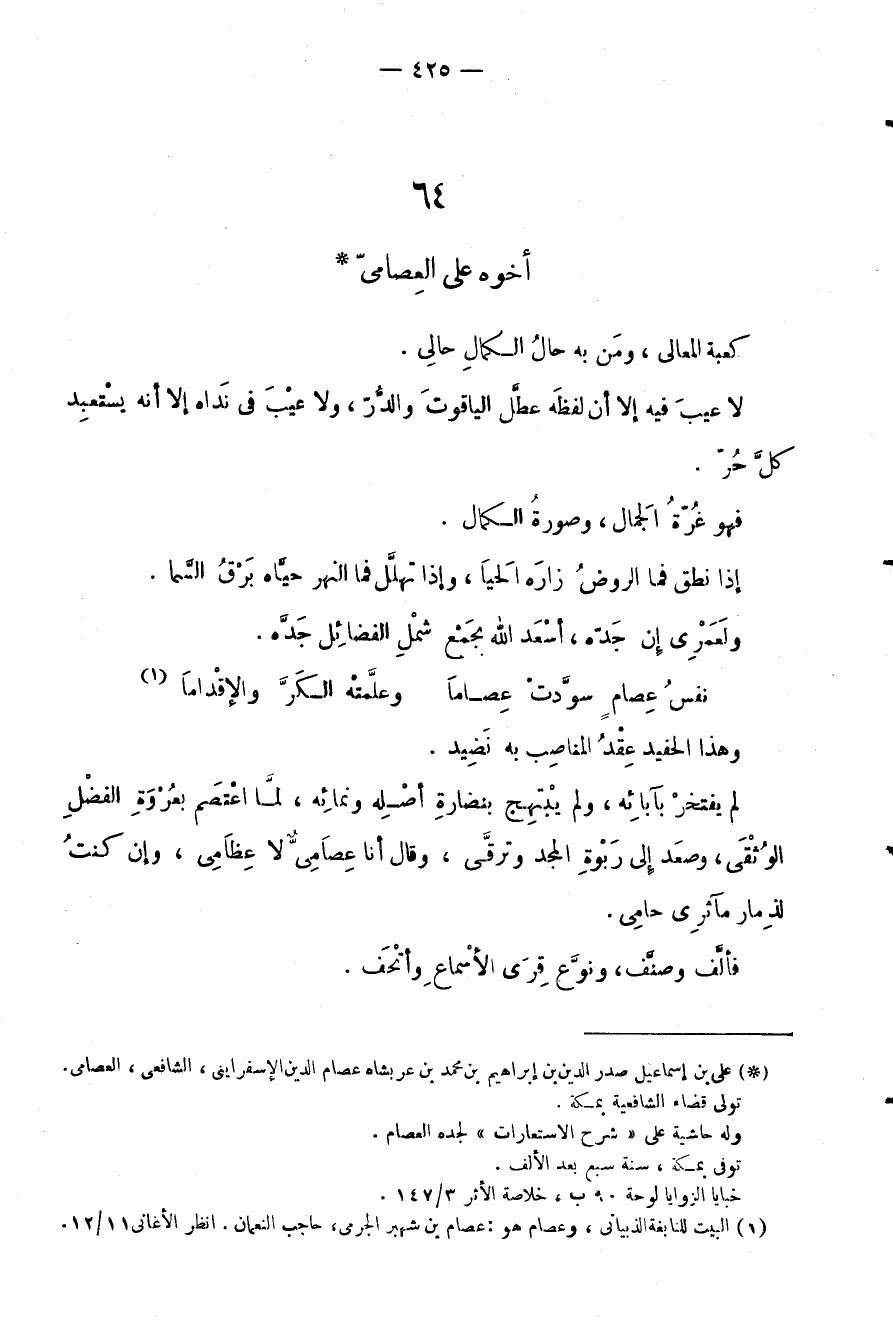 — ٤٢٥ —
٦٤
أخوه على العِصامىّ *
كعبة المعالى ، ومَن به حالُ الـكمالِ حالِى .
لا عيبَ فيه إلا أن لفظَه عطَّل الياقوتَ والدُّرّ ، ولا عيْبَ فى نَداه إلا أنه يسْتعبِد
كلَّ حُرّ .
فهو غُرّةُ الَجمال ، وصورةُ الـكمال .
إذا نطق فما الروضُ زارَه الَحيَا ، وإذا تهلَّل فما النهر حيَّاه بَرْقُ السَّما .
ولَعَمْرِى إن جَدّه ، أسْعَد الله بجَمْع شمْلِ الفضائِل جَدَّه .
نفسُ عِصامٍ سوَّدتْ عِصـاماَ وعلَّمتْه الـكَرَّ والإقْداماَ (١)
وهذا الحفيد عِقْدُ المناصِب به نَضِيد .
لم يفتخرْ بآبائِه ، ولم يبْتهِـج بنضارةِ أصْـلِه ونمائِه ، لمـَّا اعْتصَم بعُرْوَةِ الفضْلِ
الوُثْقَى ، وصعَد إلى رَبْوةِ المجد وترقَّى ، وقال أنا عِصاَمِىٌّ لا عِظاَمِى ، وإن كنتُ
لذِمار مآثرِى حامِى .
فألَّف وصنَّف ، ونوَّع قِرَى الأسْماعِ وأتْحَف .
(*) على بن إسماعيل صدر الدين بن إبراهيم بن محمد بن عربشاه عصام الدين الإسفراينى ، الشافعى ، العصامى .
تولى قضاء الشافعية بمـكة .
وله حاشية على « شرح الاستعارات » لجده العصام .
توفى بمـكة ، سنة سبع بعد الألف .
خبايا الزوايا لوحة ٩٠ ب ، خلاصة الأثر ١٤٧/٣ .
(١) البيت للنابغة الذبيانى ، وعصام هو : عصام بن شهبر الجرمى ، حاجب النعمان . انظر الأغانى ١٢/١١ .